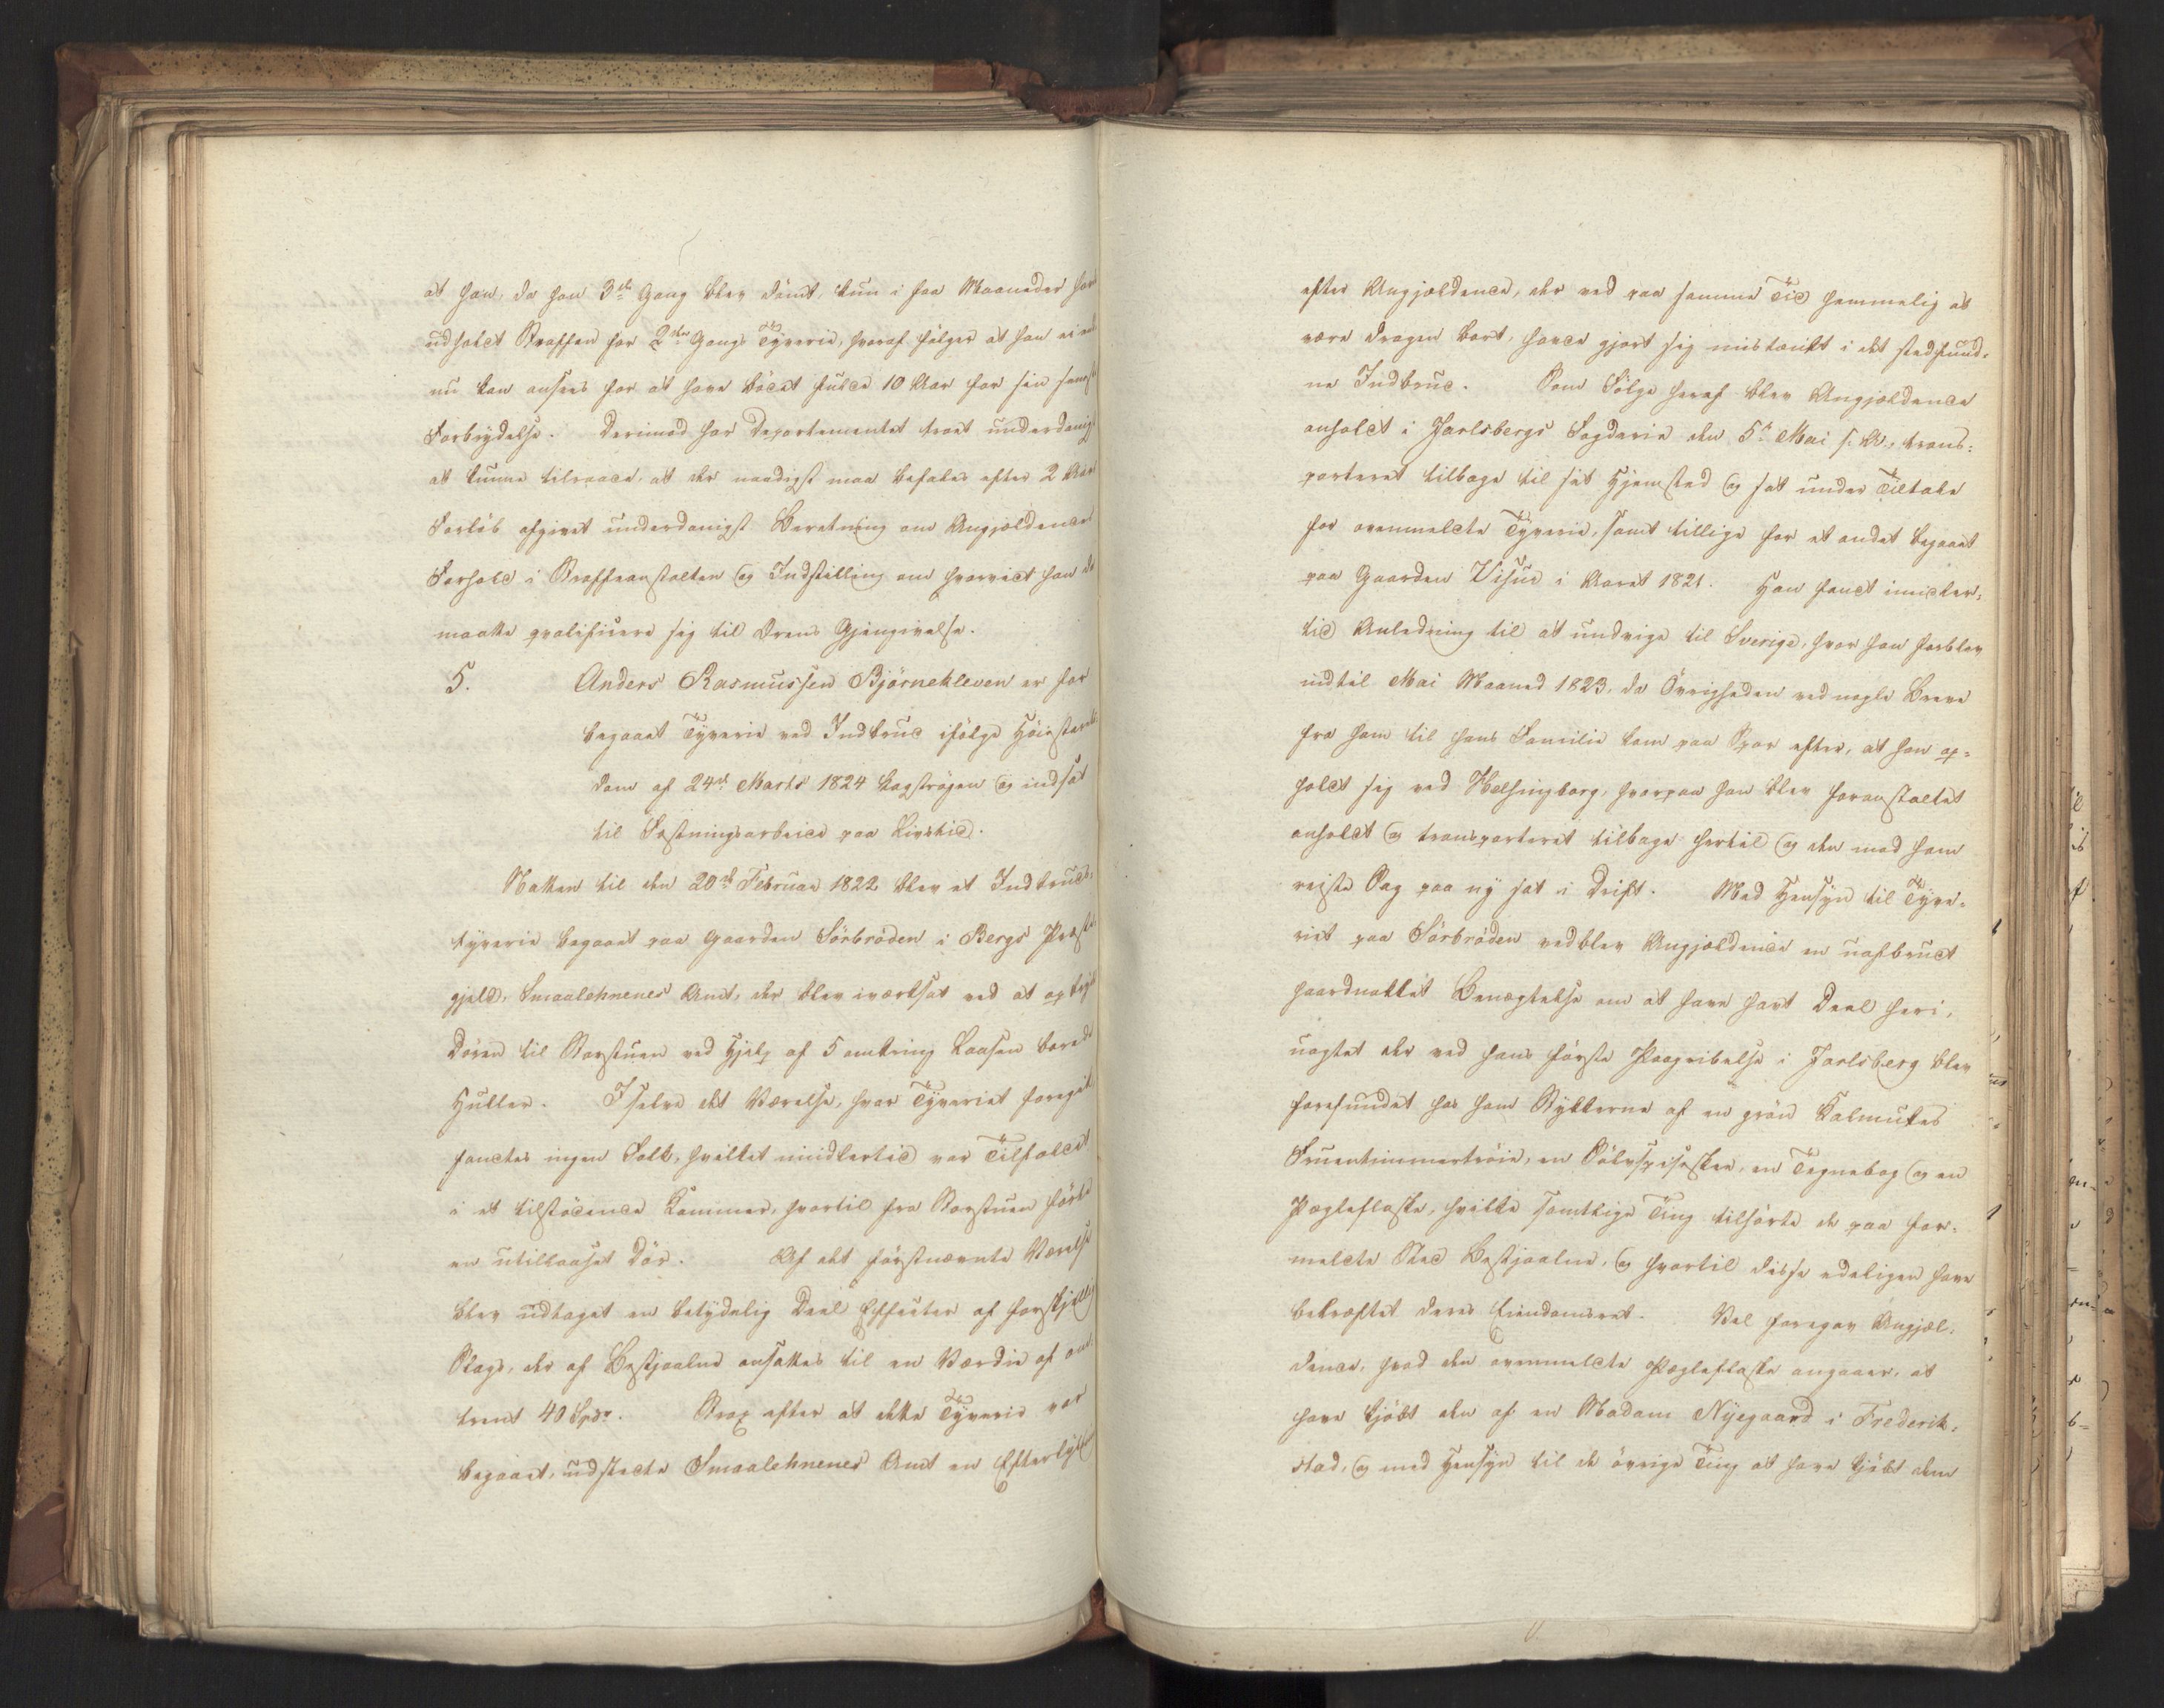 at han, da han 3die Gang blev dömt, kun i faa Maaneder har
udholdt Straffen for 2den Gangs Tyverie, hvoraf fölger at han ei end
nu kan ansees for at have bödet fulde 10 Aar for sin seneste
Forbrydelse. Derimod har Departementet troet underdanigst
at kunne tilraade, at der naadigst maa befales efter 2 Aars
Forlöb afgivet underdanigst Beretning om Angjældendes
Forhold i Straffeanstalten og Indstilling om hvorvidt han da
maatte qvalificere sig til Ærens Gjengivelse.
5. Anders Rasmussen Björnekleven er for
begaaet Tyverie ved Indbrud ifölge Höiesterets
dom af 24de Marts 1824 kagströgen og indsat
til Fæstningsarbeide paa Livstid.
Natten til den 20de Februar 1822 blev et Indbruds-
tyverie begaaet paa Gaarden Sörbröden i Bergs Præste-
gjeld, Smaalehnenes Amt, der blev iværksat ved at opbryde
Dören til Storstuen ved Hjelp af 5 omkring Laasen borede
Huller. I selve det Værelse, hvor Tyveriet foregik
fandtes ingen Folk, hvilket imidlertid var Tilfældet
i et tilstödende Kammer, hvortil fra Storstuen förte
en utillaaset Dör. Af det förstnævnte Værelse
blev udtaget en betydelig Deel Effecter af forskjellig
Slags, der af Bestjaalne ansattes til en Værdie af om-
trent 40 Spdr. Strax efter at dette Tyverie var
begaaet, udstedte Smaalehnenes Amt en Efterlysning
efter Angjældende, der ved paa samme Tid hemmelig at
være dragen bort, havde gjort sig mistænkt i det stedfund-
ne Indbrud. Som Fölge heraf blev Angjældende
anholdt i Jarlsbergs Fogderie den 5te Mai s. A., trans-
porteret tilbage til sit Hjemsted og sat under Tiltale
for ovenmeldte Tyverie, samt tillige for et andet begaaet
paa Gaarden Visur i Aaret 1821. Han fandt imidler-
tid Anledning til at undvige til Sverige, hvor han forblev
indtil Mai Maaned 1823, da Övrigheden ved nogle Breve
fra ham til hans Familie kom paa Spor efter, at han op-
holdt sig ved Helsingborg, hvorpaa han blev foranstaltet
anholdt og transporteret tilbage hertil og den mod ham
reiste Sag paa ny sat i Drift. Med Hensyn til Tyve-
riet paa Sörbröden vedblev Angjældende en uafbrudt
haardnakket Benægtelse om at have havt Deel heri,
uagtet der ved hans förste Paagribelse i Jarlsberg blev
forefundet hos ham Stykkerne af en grön Kalmukes
Fruentimmertröie, en Sölvspiseskee, en Tegnebog og en
Pægleflaske, hvilke samtlige Ting tilhörte de paa for-
meldte Sted Bestjaalne, og hvortil disse edeligen have
bekræftet deres Eiendomsret. Vel foregav Angjæl-
dende, hvad den ovenmeldte Pægleflaske angaaer, at
have kjöbt den af en Madam Nyegaard i Frederik-
stad, og med Hensyn til de övrige Ting at have kjöbt dem